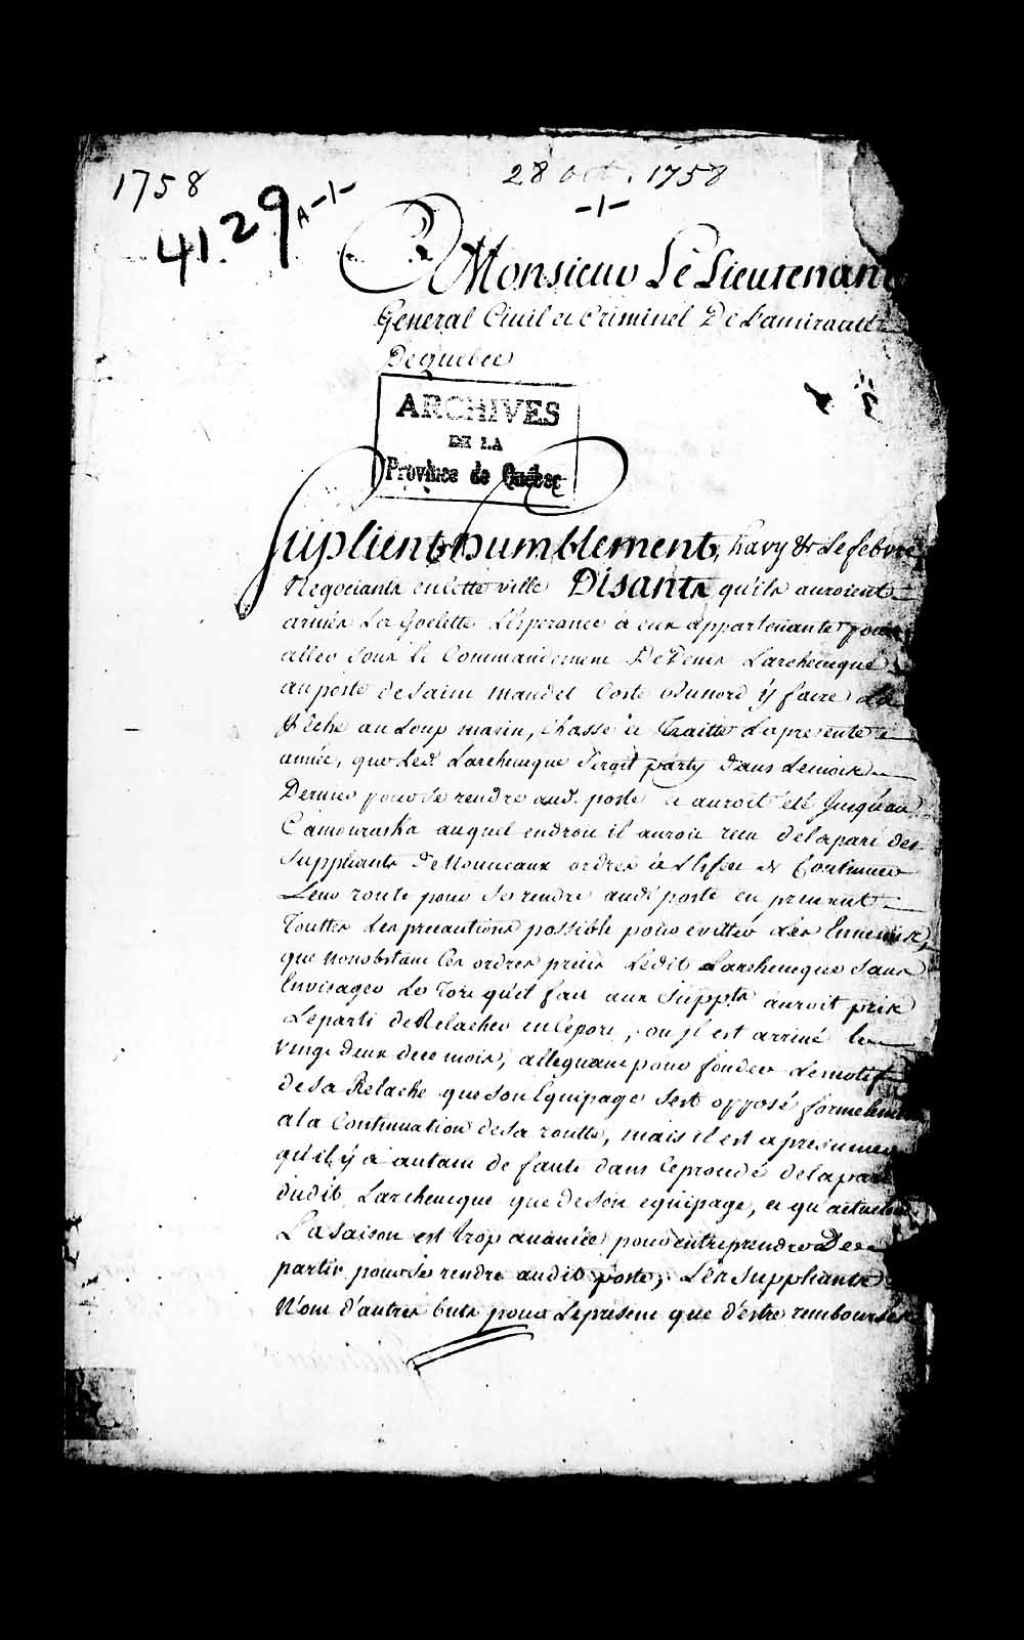 1758
28 oct. 1758
-1-
41.29 A-1-
A Monsieur Le Lieutenant
General Civil et Criminel De Lamirauté
De quebec
ARCHIVES
DE LA
Province de Québec
Suplient humblement, havy & Lefebvre
Negociants en Cette ville Disants qu'ils auroient
armés Les Goelette L'Esperance à eux appartenante pour
aller sous le Commandement De Denis Larcheveque
au poste de Saint maudet Coste du nord y faire La
Pêche au Loup marin, Chasse et Traitte La presente
année, que Led. Larcheveque Seroit party dans Le mois
Dernier pour se rendre aud. poste et auroit été Jusqu'au
Camouraska auquel endroit il auroit reçu de la part des
Suppliants De Nouveaux ordres à l'effet de Continuer
Leur route pour se rendre audt poste en prenant
Touttes Les precautions possible pour evitter Les Ennemis,
que nonobstant Ces ordres précis Ledit Larcheveque sans
Envisager Le Tort qu'il fait aux Suppts auroit pris
Le parti de Relacher en Ce port, ou Jl est arrivé le
vingt deux de ce mois, alleguant pour fonder Le motif
de sa Relache que son Equipage s'est opposé formellement
a la Continuation de sa routte, mais il est a presumer
qu'il y a autant de faute dans Ce procedé de la part
dudit Larcheveque que de son equipage, et qu'actuellement
La Saison est trop avancée pour entreprendre De
partir pour se rendre audit poste, Les Suppliants
N'ont d'autres buts pour Le present que d'estre remboursés